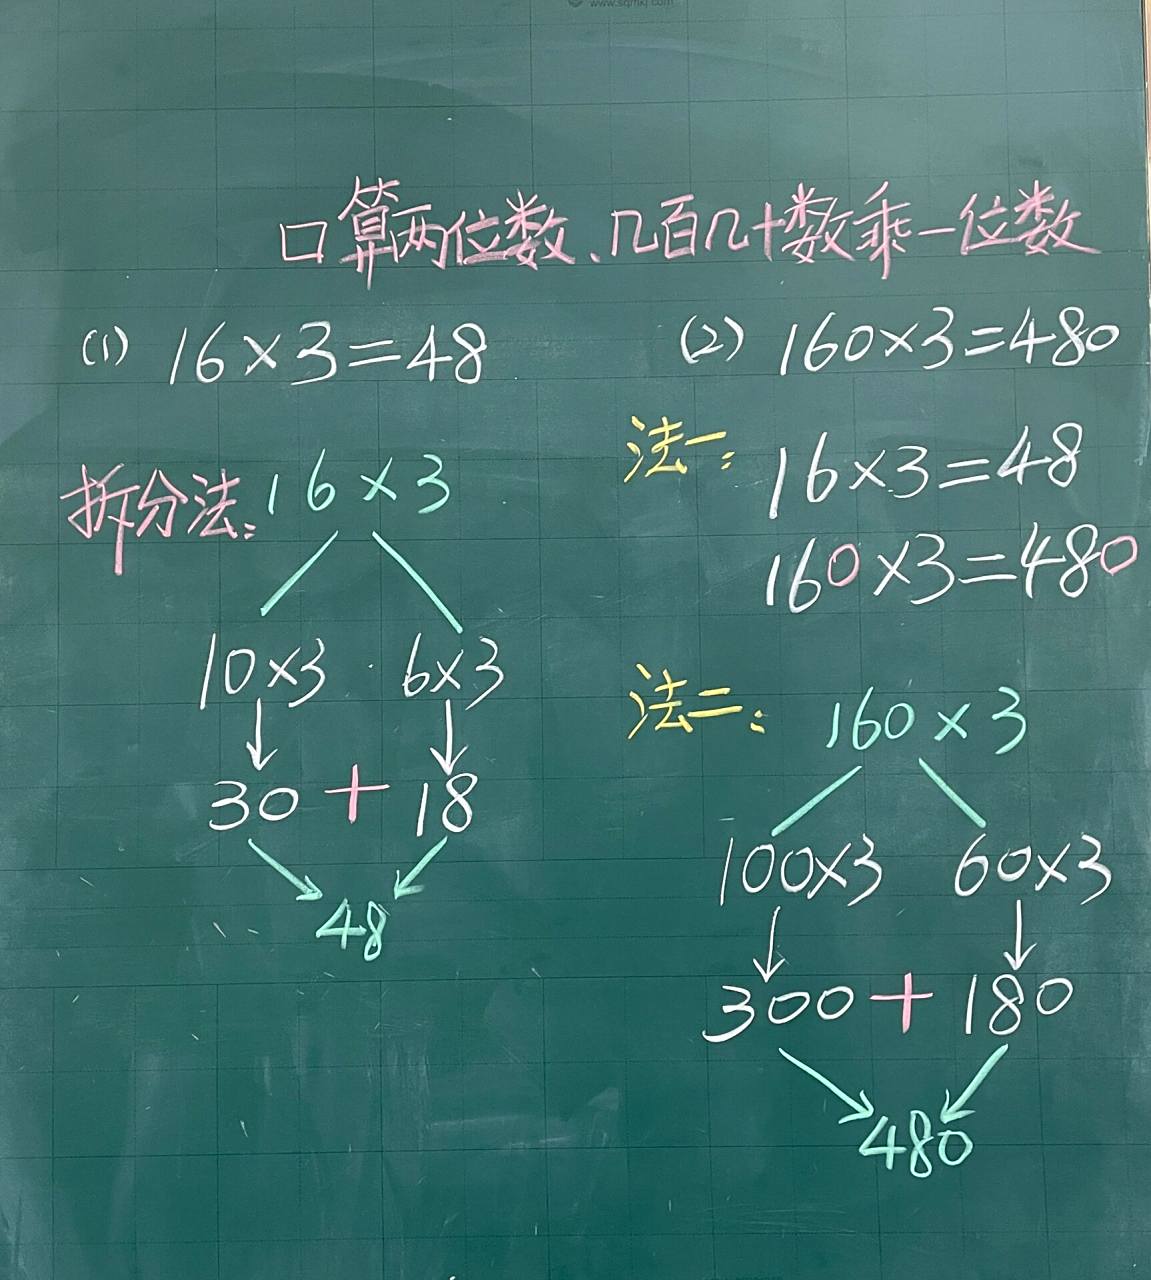 www.sqmkj.com
口算两位数、几百几十数乘一位数
(1) 16×3=48
拆分法: 16×3
10×3 6×3
30 + 18
48
(2) 160×3=480
法一: 16×3=48
160×3=480
法二: 160×3
100×3 60×3
300 + 180
480